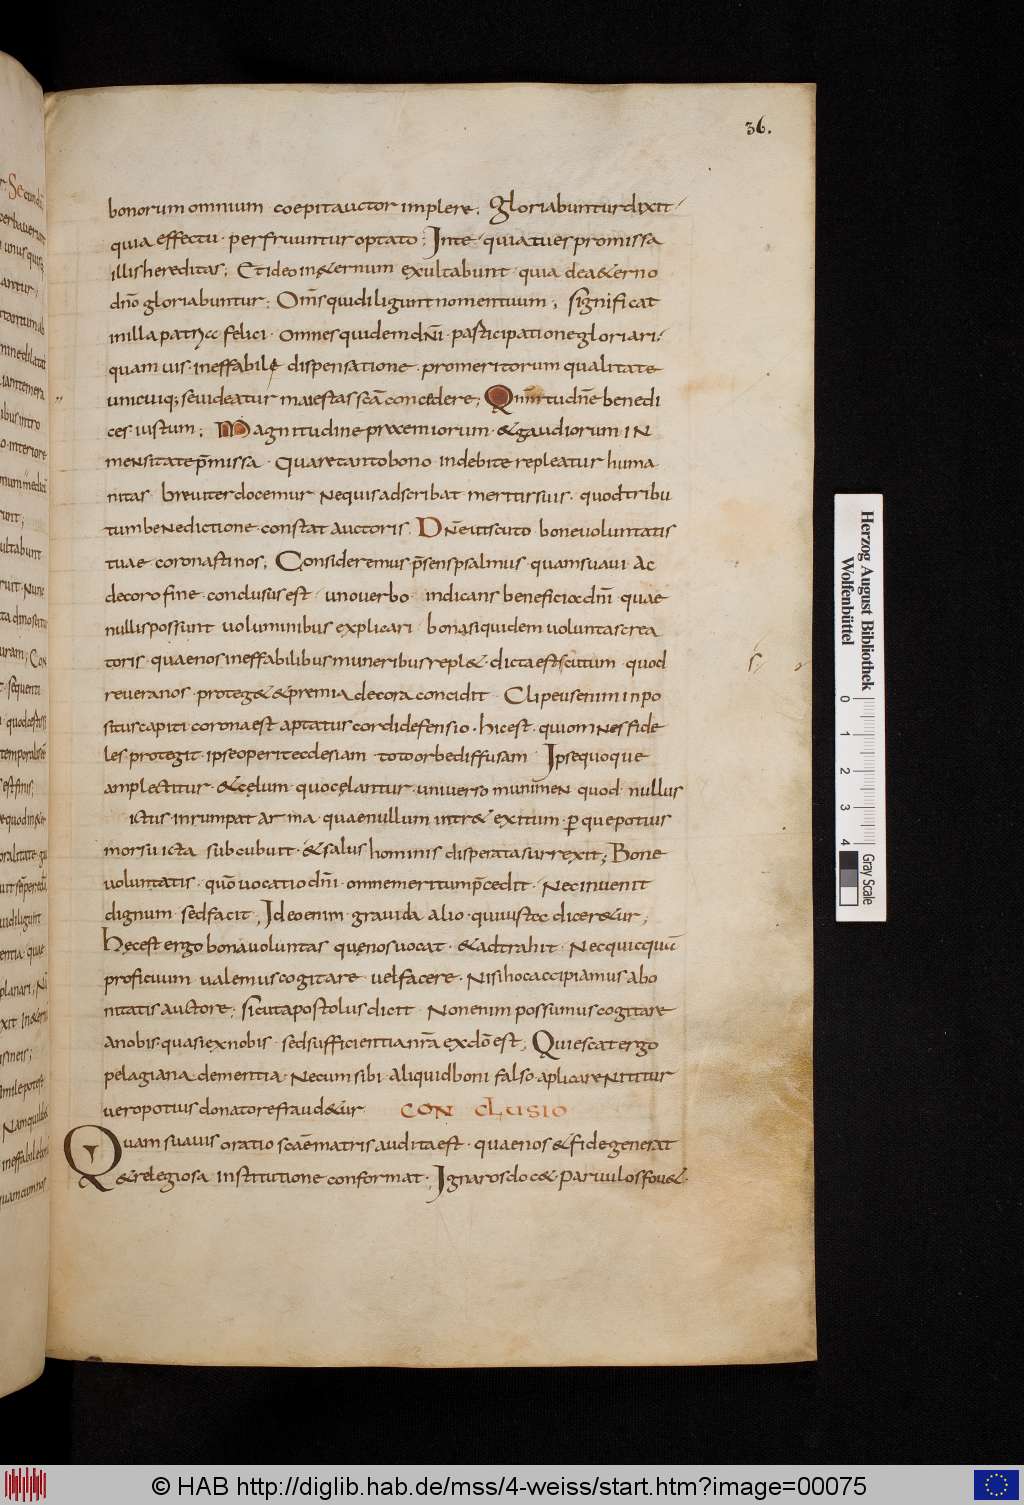 36.
bonorum omnium coepit auctor implere; Gloriabuntur dixit
quia effectu perfruuntur optato; In te quia tu es promissa
illis hereditas; Et ideo in &ernum exultabunt quia de a&erno
dño gloriabuntur; Omͤs qui diligunt nomen tuum; significat
in illa patria felici omnes quidem dñi participatione gloriari
quamuis ineffabile dispensatione pro meritorum qualitate
unicuiq; se uideatur maiestas scā concedere; Qm̄ tu dñe benedi
ces iustum; Magnitudine praemiorum & gaudiorum in
mensitate p̄missa Quare tanto bono indebite repleatur huma
nitas breuiter docemur Ne quis adscribat meritis suis quod tribu
tum benedictione constat auctoris. Dñe ut scuto bone uoluntatis
tuae coronasti nos; Consideremus p̄sens psalmus quam suaui ac
decoro fine conclusus est uno uerbo indicans beneficia dñi quae
nullis possunt uoluminibus explicari bona siquidem uoluntas crea
toris quae nos ineffabilibus muneribus repl& dicta est scutum quod
reuera nos proteg& & premia decora concidit Clipeus enim inpo
situs capiti corona est aptatus cordi defensio. hic est qui omnes fide
les protegit ipse operit ecclesiam toto orbe diffusam Ipse quoque
amplectitur & cęlum quo cęlantur uniuerso munimen quod nullus
ictus inrumpat arma quae nullum intr& exitum per que potius
morsu icta subcubuit & salus hominis disperata surrexit; Bone
uoluntatis quō uocatio dñi omne meritum p̄cedit Nec inuenit
dignum sed facit, Ideo enim grauida alio qui iusta dicer&ur;
Hęc est ergo bona uoluntas quę nos uocat & adtrahit Nec quicquā
proficuum ualemus cogitare uel facere. Nisi hoc accipiamus a bo
nitatis auctore; sicut apostolus dicit Non enim possumus cogitare
a nobis quasi ex nobis sed sufficientia nr̄a ex dō est; Quiescat ergo
pelagiana dementia Ne cum sibi aliquid boni falso aplicare nititur
uero potius donatore fraud&ur CONCLUSIO
Quam suauis oratio scāe matris audita est quae nos & fide generat
& religiosa institutione conformat. Ignaros doc& paruulos fou&
Herzog August Bibliothek
Wolfenbüttel
0 1 2 3 4
Gray Scale
© HAB http://diglib.hab.de/mss/4-weiss/start.htm?image=00075